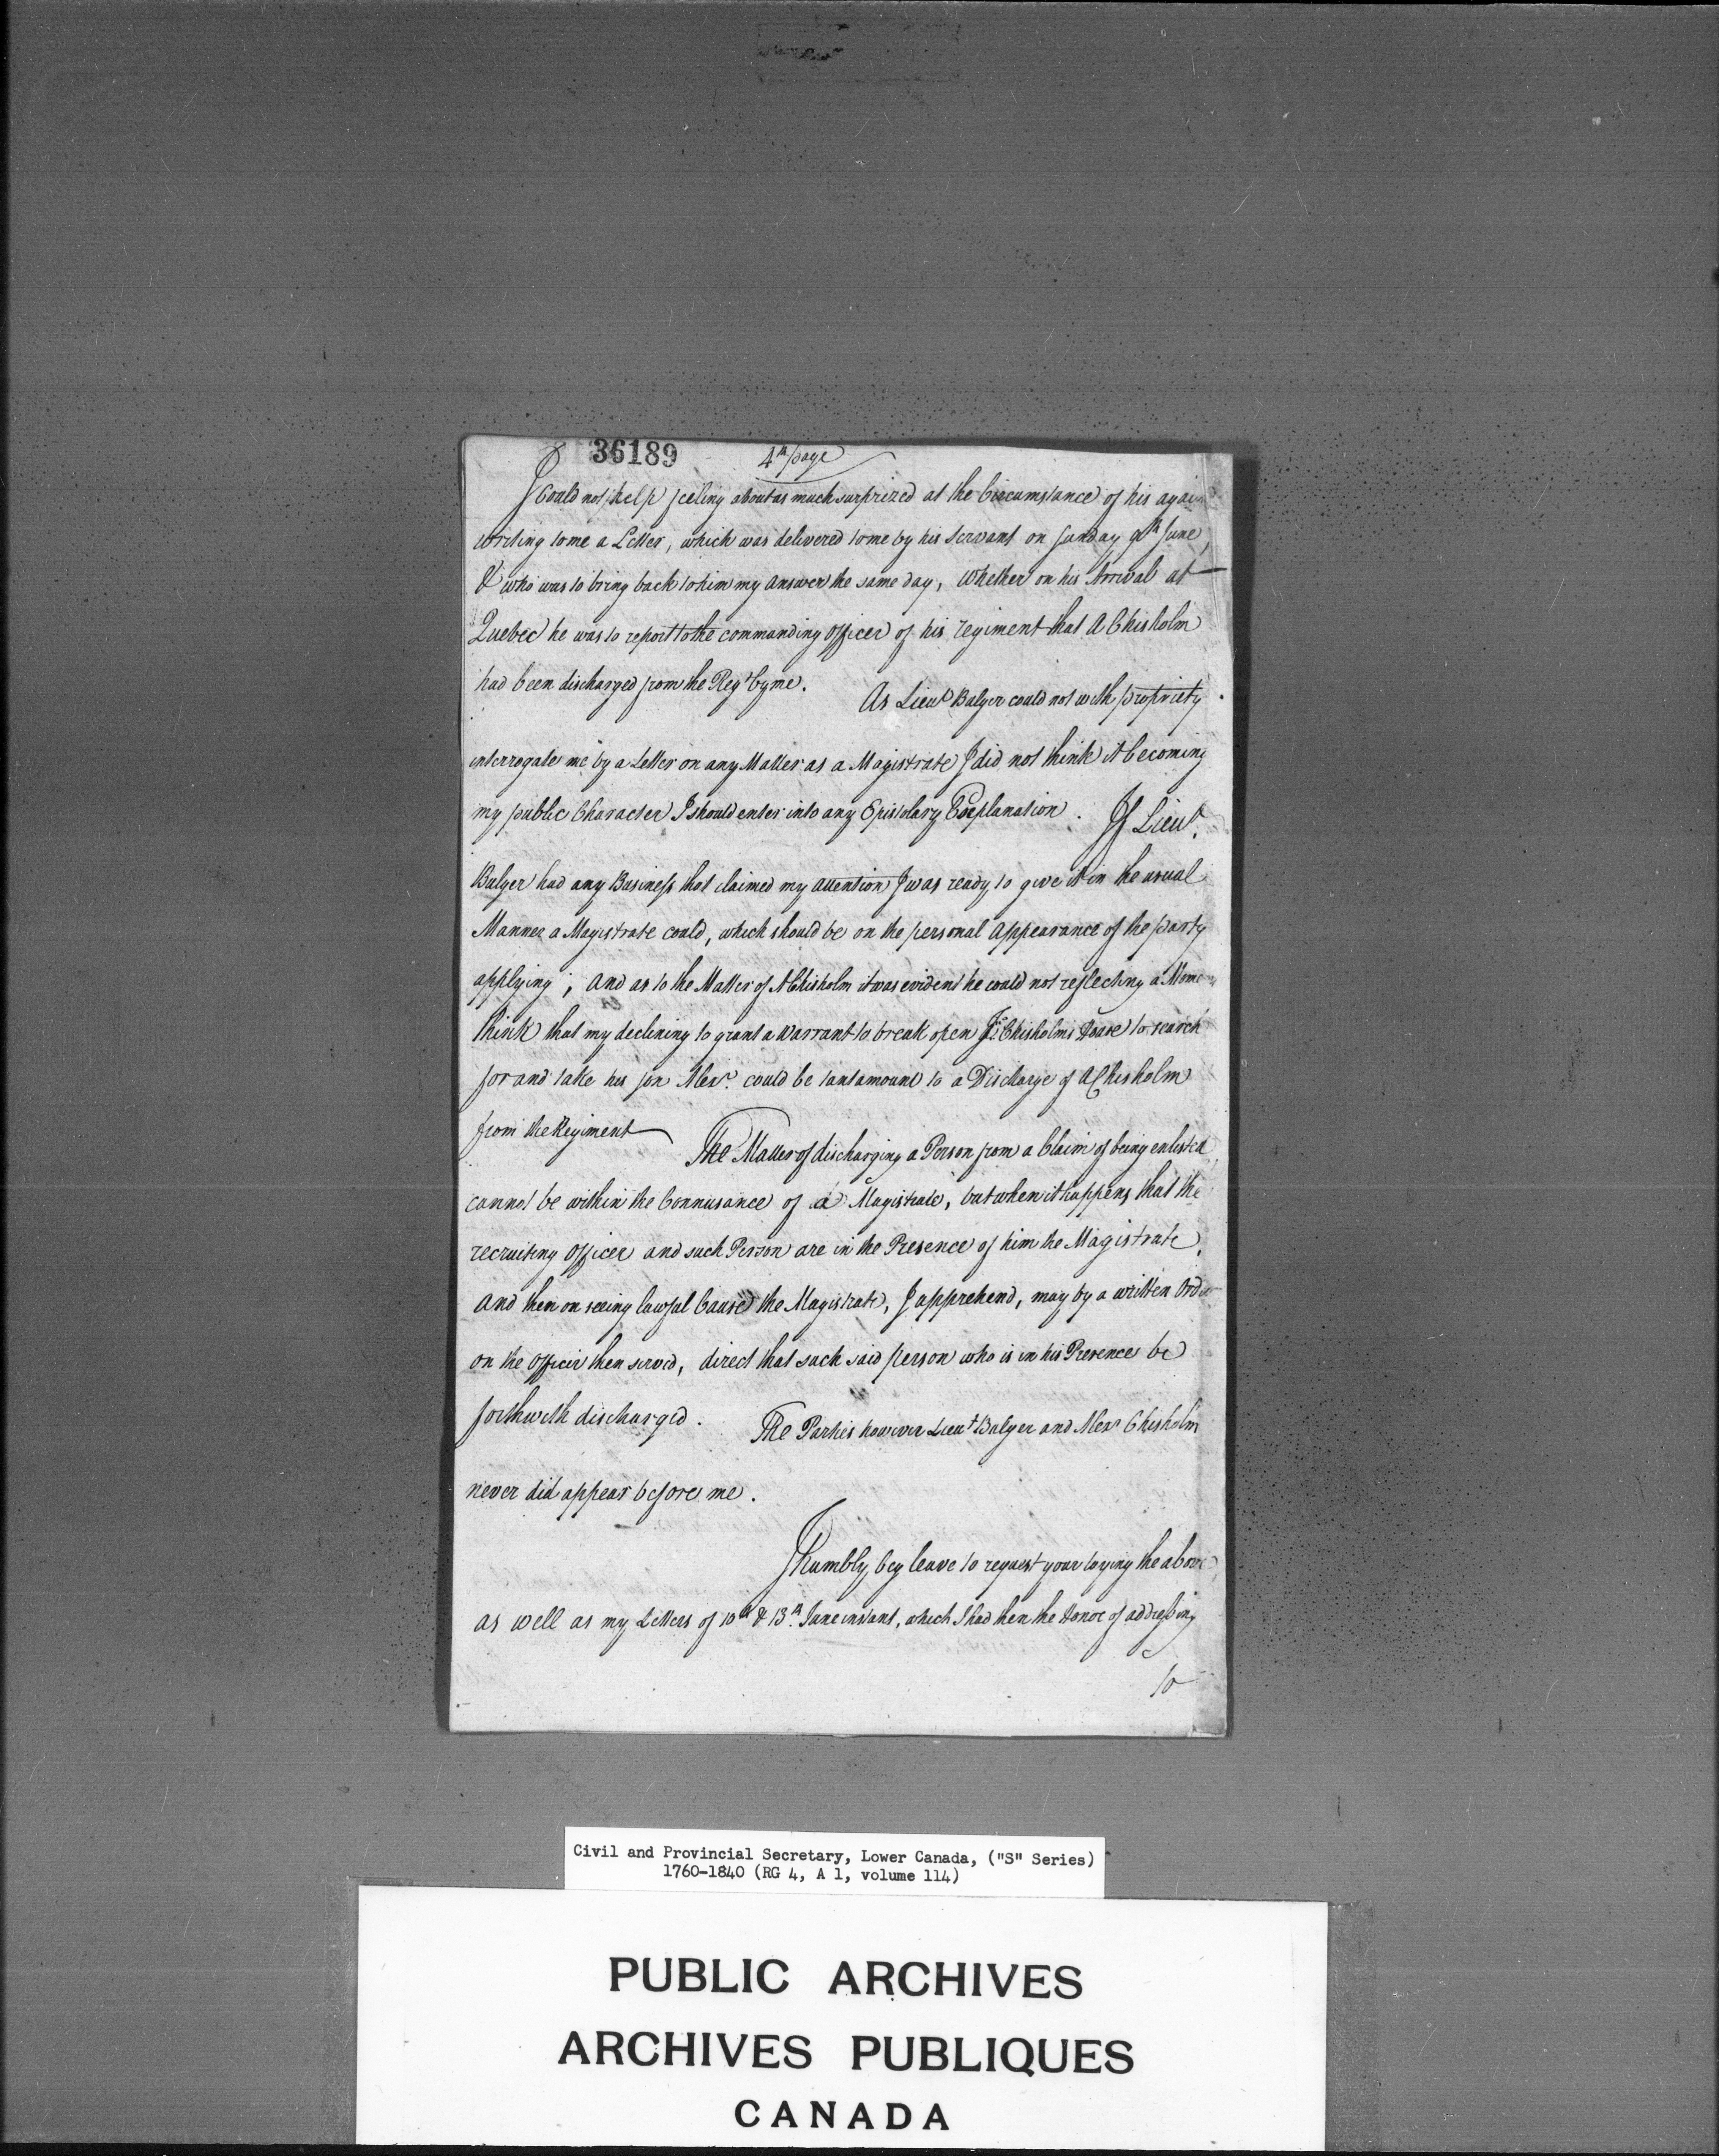 36189
4th page
I Could not help feeling about as much surprized at the Circumstance of his again
writing to me a Letter, which was delivered to me by his Servant on Sunday 9th June,
& who was to bring back to him my answer the same day, whether on his Arrival at
Quebec he was to report to the commanding Officer of his regiment that A Chisholm
had been discharged from the Regt by me. As Lieut Bulger could not with propriety
interrogate me by a Letter on any Matter as a Magistrate I did not think it becoming
my public Character I should enter into any Epistolary Explanation. If Lieut.
Bulger had any Business that claimed my attention I was ready to give it in the usual
Manner a Magistrate could, which should be on the personal appearance of the party
applying; and as to the Matter of A Chisholm it was evident he could not reflecting a Moment
think that my declining to grant a Warrant to break open Chisholms House to search
for and take his son Alexr. could be tantamount to a Discharge of A Chisholm
from the Regiment The Matter of discharging a Person from a Claim of being enlisted
cannot be within the Connusance of a Magistrate, but when it happens that the
recruiting Officer and such Person are in the Presence of him the Magistrate,
and then on seeing lawful Cause the Magistrate, I apprehend, may by a written Order
on the Officer then served, direct that such said person who is in his Presence be
forthwith discharged. The Parties however Lieut Bulger and Alexr Chisholm
never did appear before me.
I humbly beg leave to request your laying the above
as well as my Letters of 10th & 13th. June instant, which I had then the Honor of addressing
to
Civil and Provincial Secretary, Lower Canada, ("S" Series)
1760-1840 (RG 4, A 1, volume 114)
PUBLIC ARCHIVES
ARCHIVES PUBLIQUES
CANADA